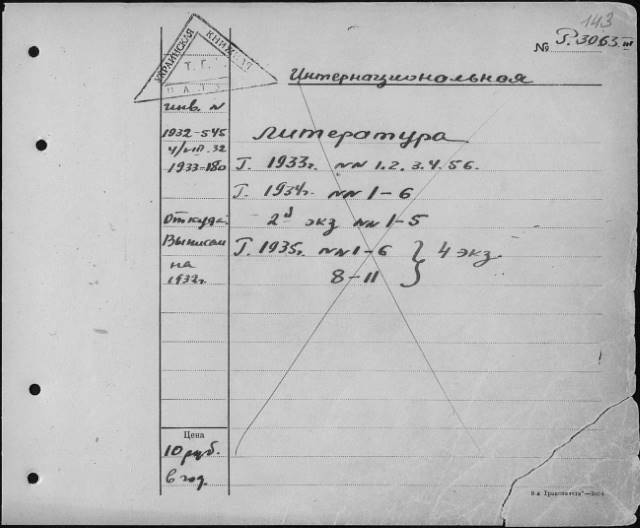 143
№ Р.3063.III
УКРАИНСКАЯ
КНИЖНАЯ
Т. Г.
ПАЛ
Интернациональная
инв. N
1932-545
4/VIII.32
1933-180
литература
Г. 1933г. NN 1. 2. 3. 4. 5 6.
Г. 1934г. NN 1-6
2й экз NN 1-5
Откуда:
Выписан
на
1932г.
Г. 1935г. NN 1-6 } 4 экз.
8-11
Цена
10 руб.
в год.